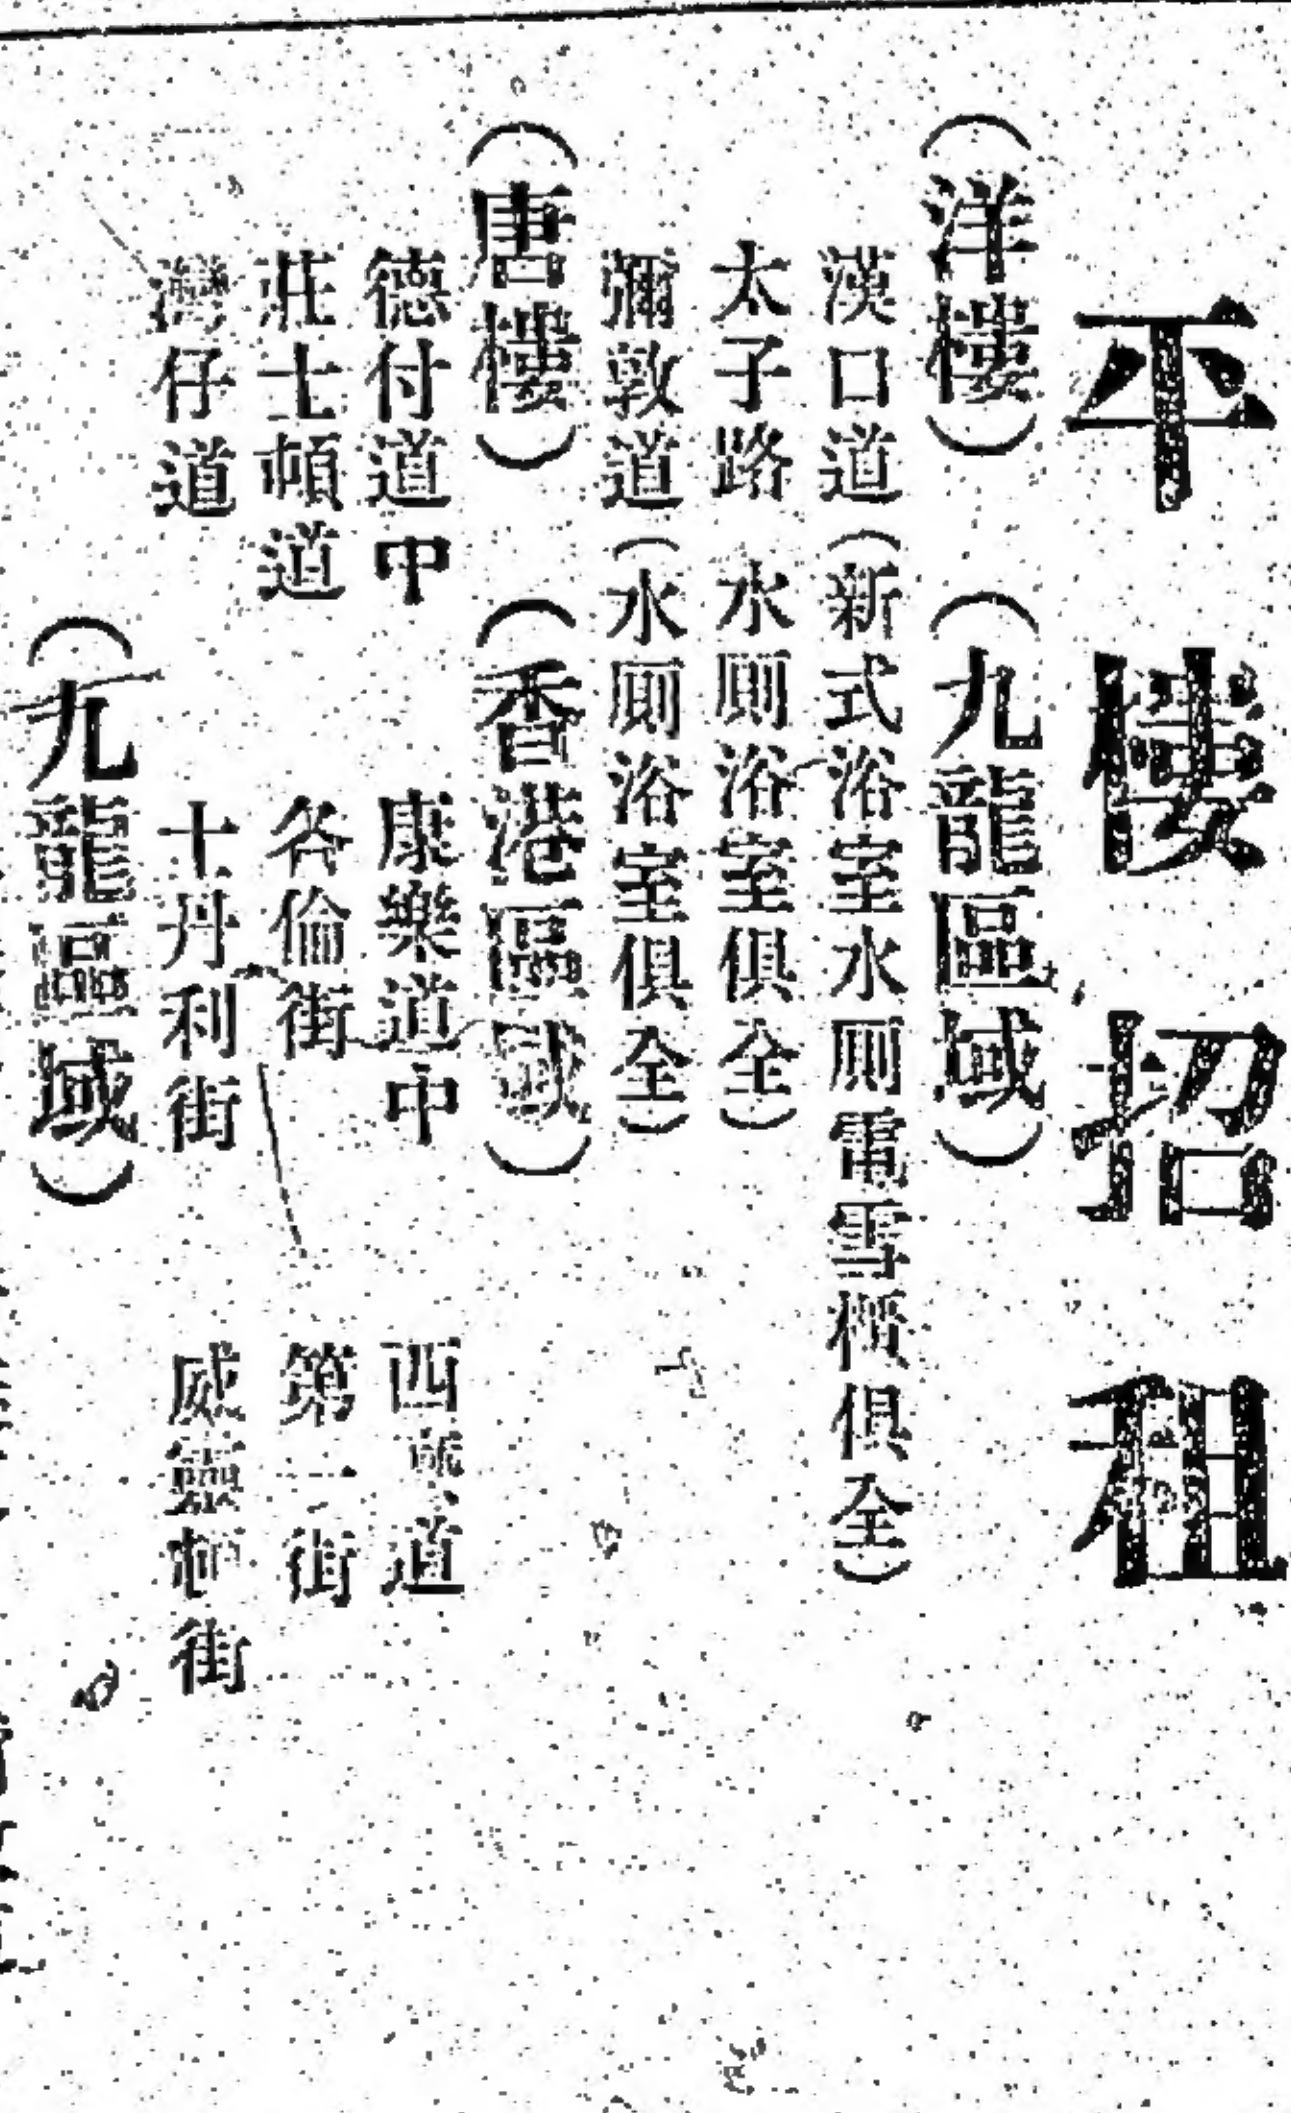 平樓招租
(洋樓) (九龍區域)
漢口道(新式浴室水厠電雪櫃俱全)
太子路 水厠浴室俱全)
彌敦道(水厠浴室俱全)
(唐樓) (香港區域)
德付道中 康樂道中 西商道
莊士頓道 各倫街 第一街
灣仔道 士丹利街 威靈頓街
(九龍區域)